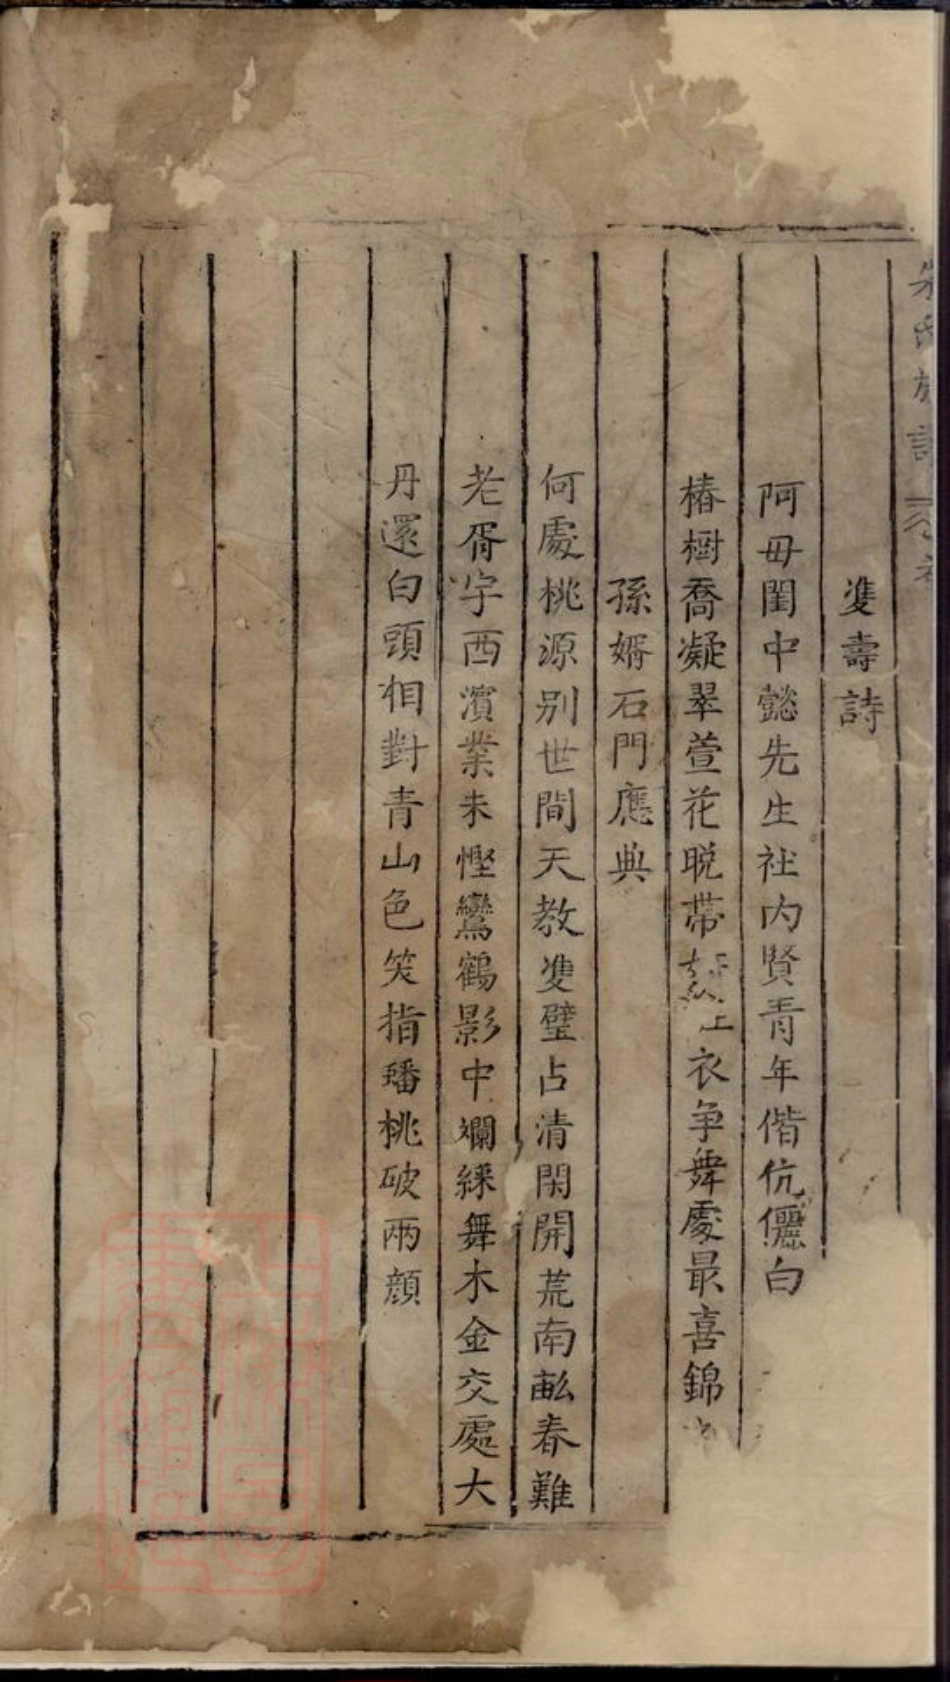 雙壽詩
阿毋閨中懿先生社内賢青年偕伉儷白
椿樹喬凝翠萱花晩帶衣争舞處最喜錦
孫婿石門應典
何處桃源别世間天教雙璧占清閑開荒南畝春難
老胥宇西濱業未慳鸞鶴影中斕綵舞木金交處大
丹還白頭相對青山色笑指蟠桃破兩顔